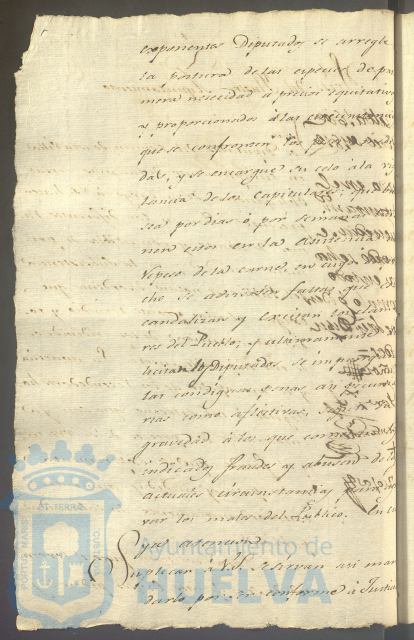 exponentes Diputados se arregle
la postura de las especies de pri
mera necesidad à precios equitativos
y proporcionados à las
que se confronten los
das, y se encargue su celo à la vigi
lancia de los Capitulares
sea por dias ò por semanas
nen estos en la asistencia
repeso de la carne, en
che se advierten faltas que
candalizan y excitan
res del Pueblo; y ultimamente
licitan los Diputados se impongan
las condignas penas asi pecunia
rias como aflictivas, segun la
gravedad à los que
indicados fraudes y abusos
actuales circunstancias
var los males del Publico. En cu
ya atencion
Suplican à V.S. se sirvan asi man
darlo por ser conforme à Justicia
Ayuntamiento de
HUELVA
PORTUS MARIS
ET TERRÆ
CUSTODIA